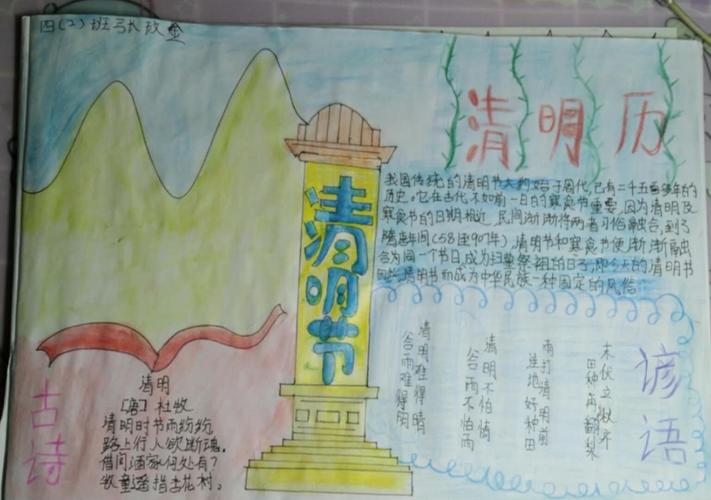 四(2)班张政金
清明历
清明节
我国传统的清明节大约始于周代,已有二千五百多年的
历史。它在古代不如前一日的寒食节重要,因为清明及
寒食节的日期相近,民间渐渐将两者习俗融合,到了
隋唐年间(581至907年),清明节和寒食节便渐渐融
合为同一个节日,成为扫墓祭祖的日子,即今天的清明节
清明节和成为中华民族一种固定的风俗!
古诗
清明
[唐] 杜牧
清明时节雨纷纷,
路上行人欲断魂。
借问酒家何处有?
牧童遥指杏花村。
谚语
雨打清明前
洼地好种田
清明不怕晴
谷雨不怕雨
清明难得晴
谷雨难得阴